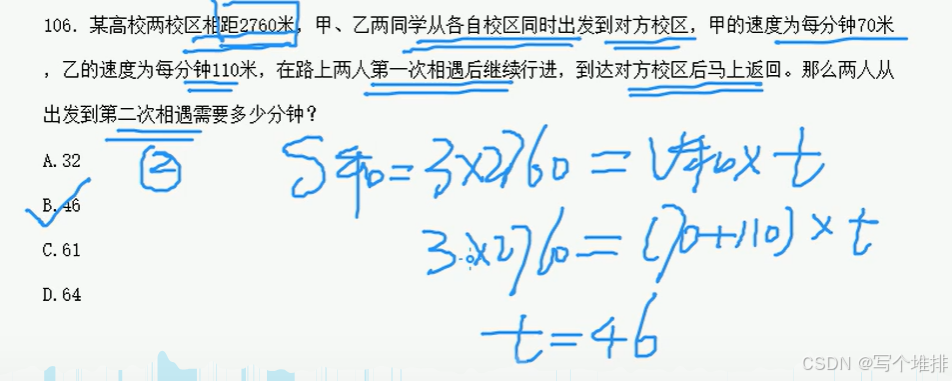 106. 某高校两校区相距2760米，甲、乙两同学从各自校区同时出发到对方校区，甲的速度为每分钟70米
，乙的速度为每分钟110米，在路上两人第一次相遇后继续行进，到达对方校区后马上返回。那么两人从
出发到第二次相遇需要多少分钟？
A.32
②
S和=3×2760=V和×t
B.46
3×2760=(70+110)×t
C.61
D.64
t=46
CSDN @写个堆排